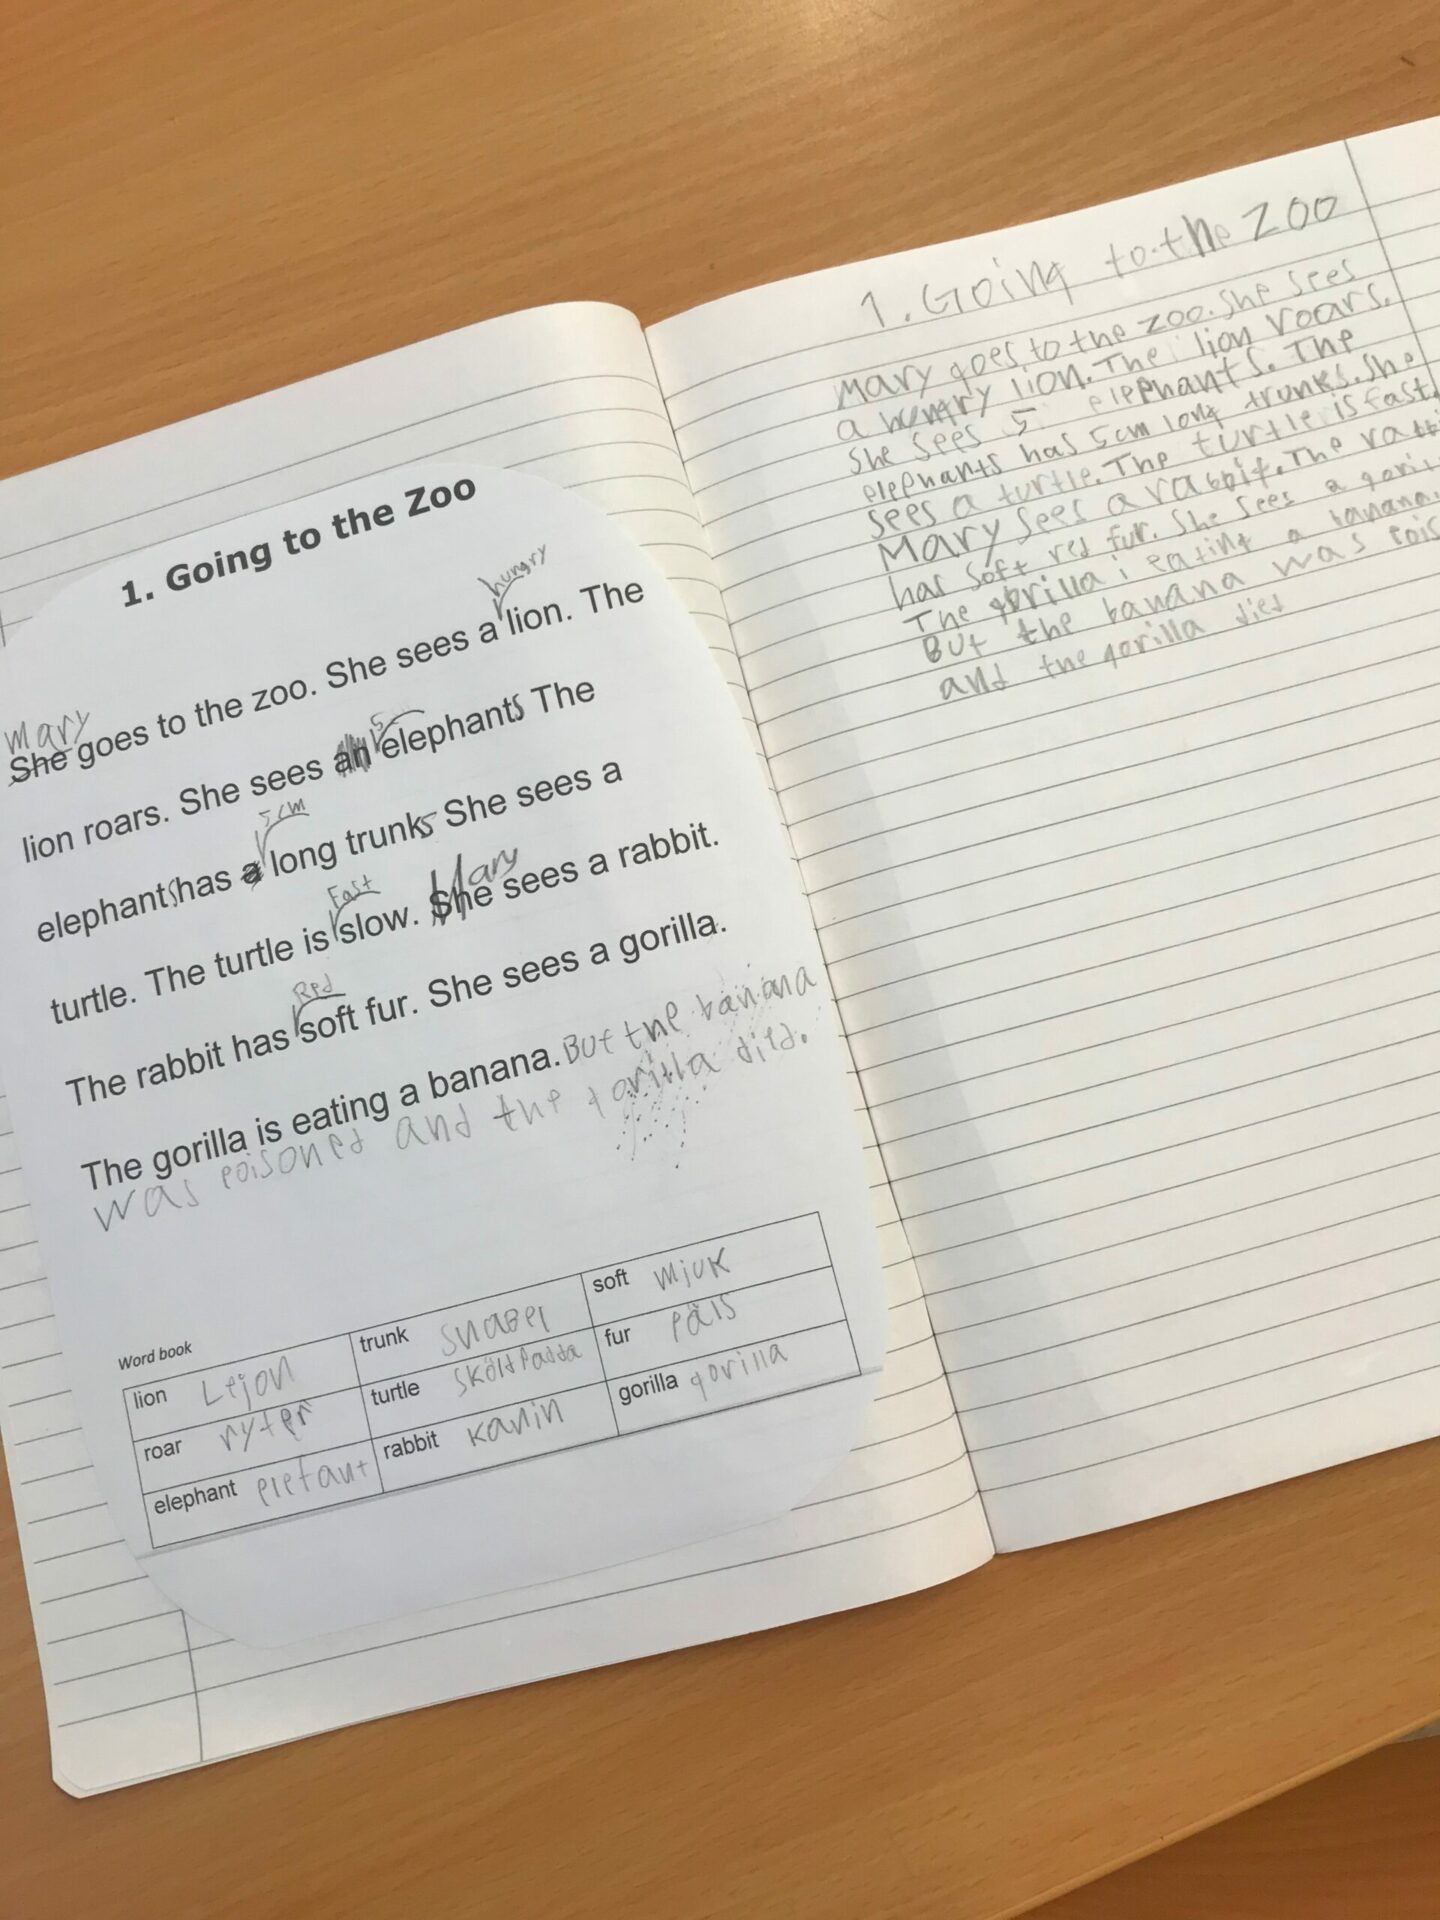 1. Going to the Zoo
hungry
Mary
She goes to the zoo. She sees a lion. The
5
lion roars. She sees an elephants The
5cm
elephants has a long trunks She sees a
Fast
Mary
turtle. The turtle is slow. She sees a rabbit.
Red
The rabbit has soft fur. She sees a gorilla.
The gorilla is eating a banana. But the banana
was poisoned and the gorilla died.
Word book
lion Lejon
trunk snabel
soft mjuk
roar ryter
turtle sköldpadda
fur päls
elephant elefant
rabbit kanin
gorilla gorilla
1. Going to the Zoo
Mary goes to the zoo. She sees
a hungry lion. The lion roars.
She sees 5 elephants. The
elephants has 5cm long trunks. She
sees a turtle. The turtle is fast.
Mary sees a rabbit. The
has soft red fur. She sees a
The gorilla i eating a banana.
But the banana was
and the gorilla died